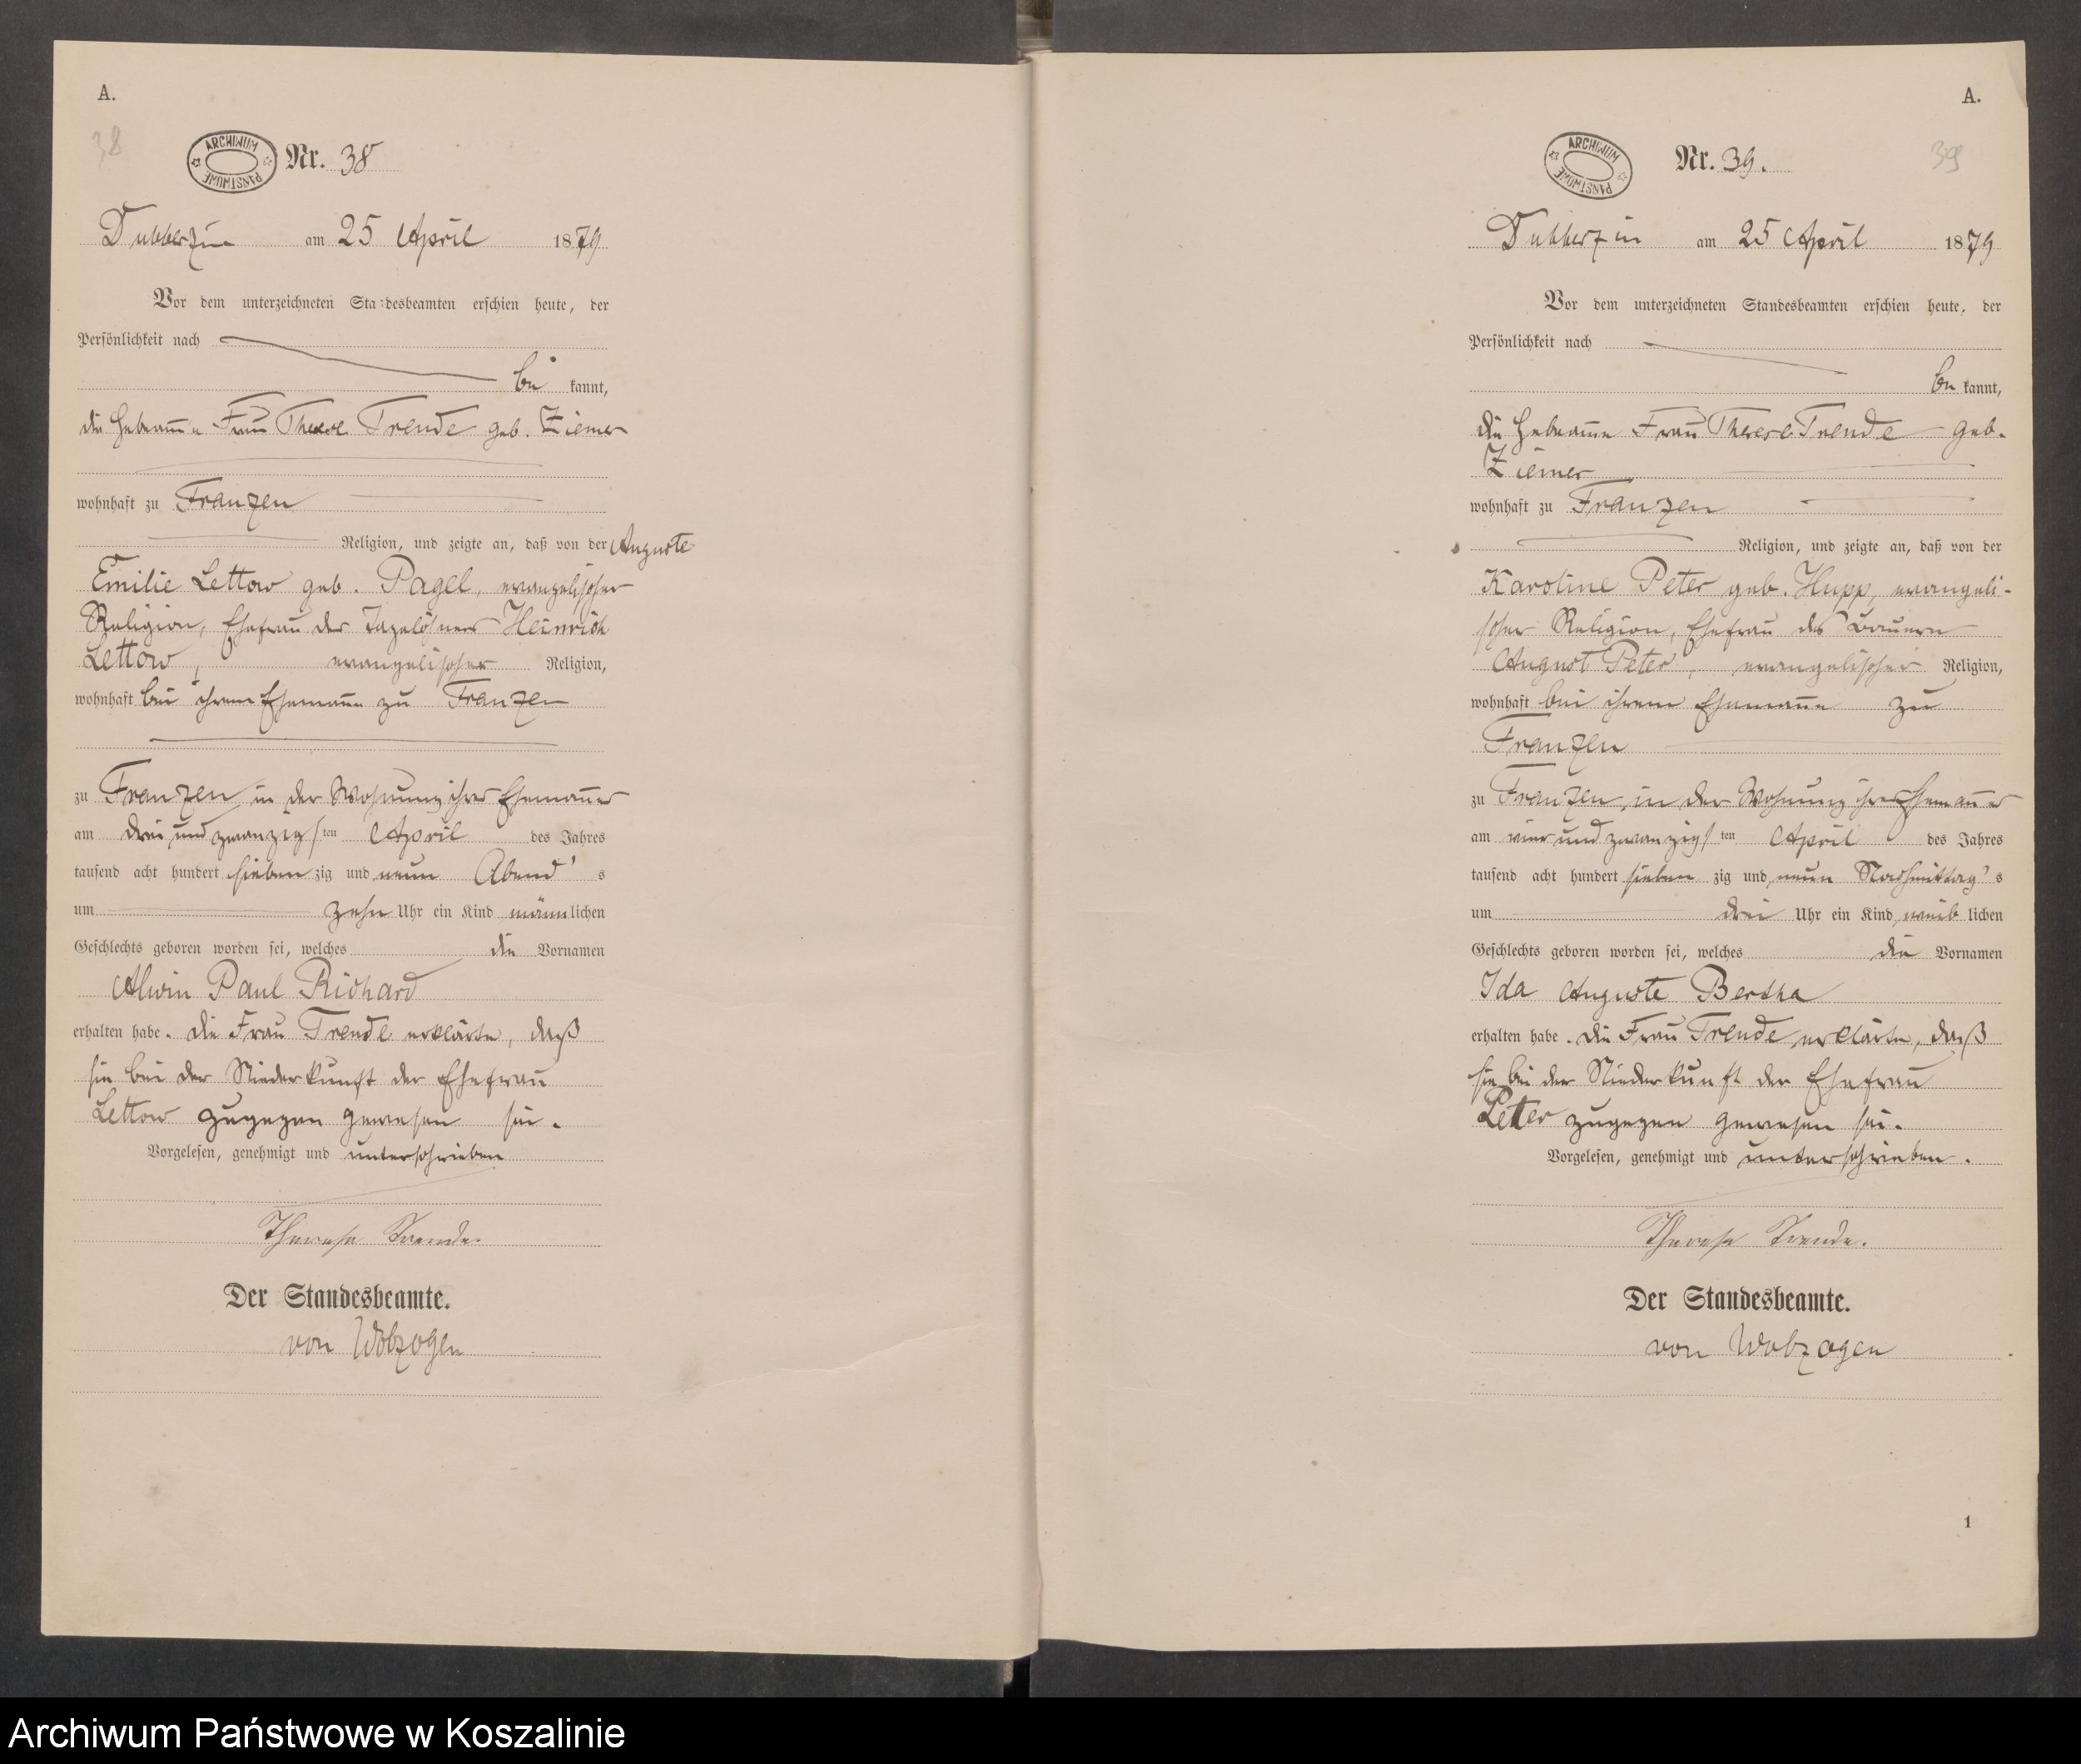 A.
38
ARCHIWUM PAŃSTWOWE
Nr. 38
Dubberzin am 25 April 1879
Vor dem unterzeichneten Standesbeamten erschien heute, der
Persönlichkeit nach
be kannt,
die Hebamme Frau Therese Trende geb. Ziemer
wohnhaft zu Franzen
Religion, und zeigte an, daß von der Auguste
Emilie Lettow geb. Pagel, evangelischer
Religion, Ehefrau des Tagelöhners Heinrich
Lettow, evangelischer Religion,
wohnhaft bei ihrem Ehemanne zu Franzen
zu Franzen in der Wohnung ihres Ehemannes
am drei und zwanzigsten April des Jahres
tausend acht hundert siebenzig und neun Abend's
um zehn Uhr ein Kind männlichen
Geschlechts geboren worden sei, welches die Vornamen
Alwin Paul Richard
erhalten habe. Die Frau Trende erklärte, daß
sie bei der Niederkunft der Ehefrau
Lettow zugegen gewesen sei.
Vorgelesen, genehmigt und unterschrieben
Therese Trende.
Der Standesbeamte.
von Wobzogen
A.
39
ARCHIWUM PAŃSTWOWE
Nr. 39.
Dubberzin am 25 April 1879
Vor dem unterzeichneten Standesbeamten erschien heute, der
Persönlichkeit nach
be kannt,
die Hebamme Frau Therese Trende geb.
Ziemer
wohnhaft zu Franzen
Religion, und zeigte an, daß von der
Karoline Peter geb. Hupp, evangeli-
scher Religion, Ehefrau des Bauern
August Peter, evangelischer Religion,
wohnhaft bei ihrem Ehemanne zu
Franzen
zu Franzen, in der Wohnung ihres Ehemannes
am vier und zwanzigsten April des Jahres
tausend acht hundert siebenzig und neun Nachmittag's
um drei Uhr ein Kind weiblichen
Geschlechts geboren worden sei, welches die Vornamen
Ida Auguste Bertha
erhalten habe. Die Frau Trende erklärte, daß
sie bei der Niederkunft der Ehefrau
Peter zugegen gewesen sei.
Vorgelesen, genehmigt und unterschrieben.
Therese Trende.
Der Standesbeamte.
von Wobzogen
1
Archiwum Państwowe w Koszalinie